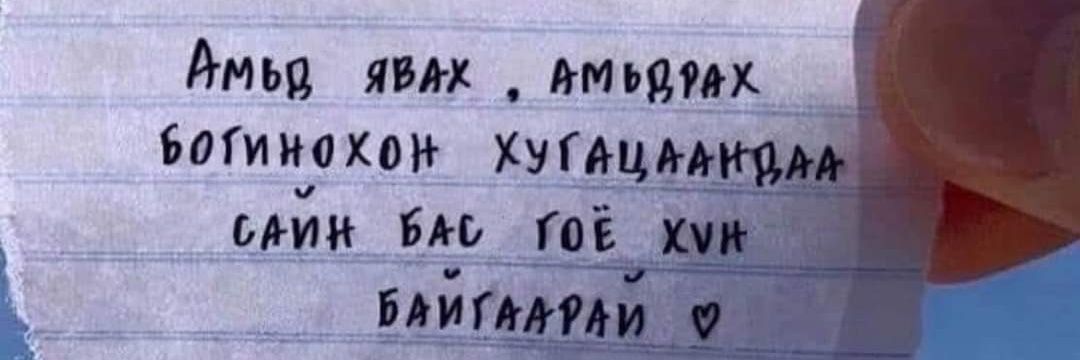 Амьд явах, амьдрах
богинохон хугацаандаа
сайн бас гоё хүн
байгаарай ♡